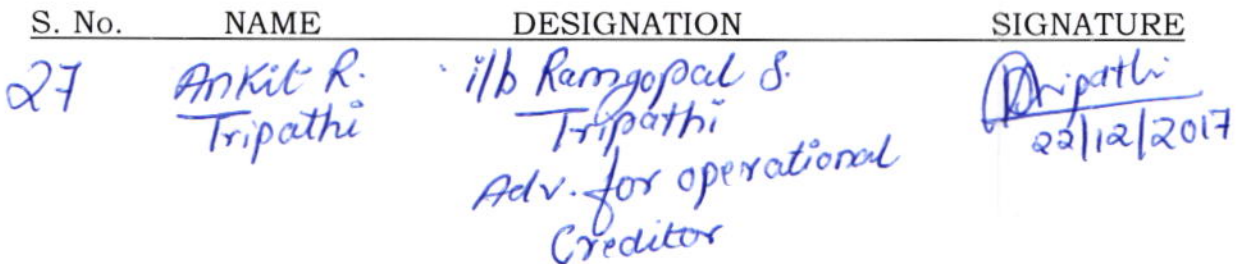 S. No. NAME DESIGNATION SIGNATURE
27 Ankit R. i/b Ramgopal S.
Tripathi Tripathi
Adv. for operational
Creditor
Tripathi
22/12/2017